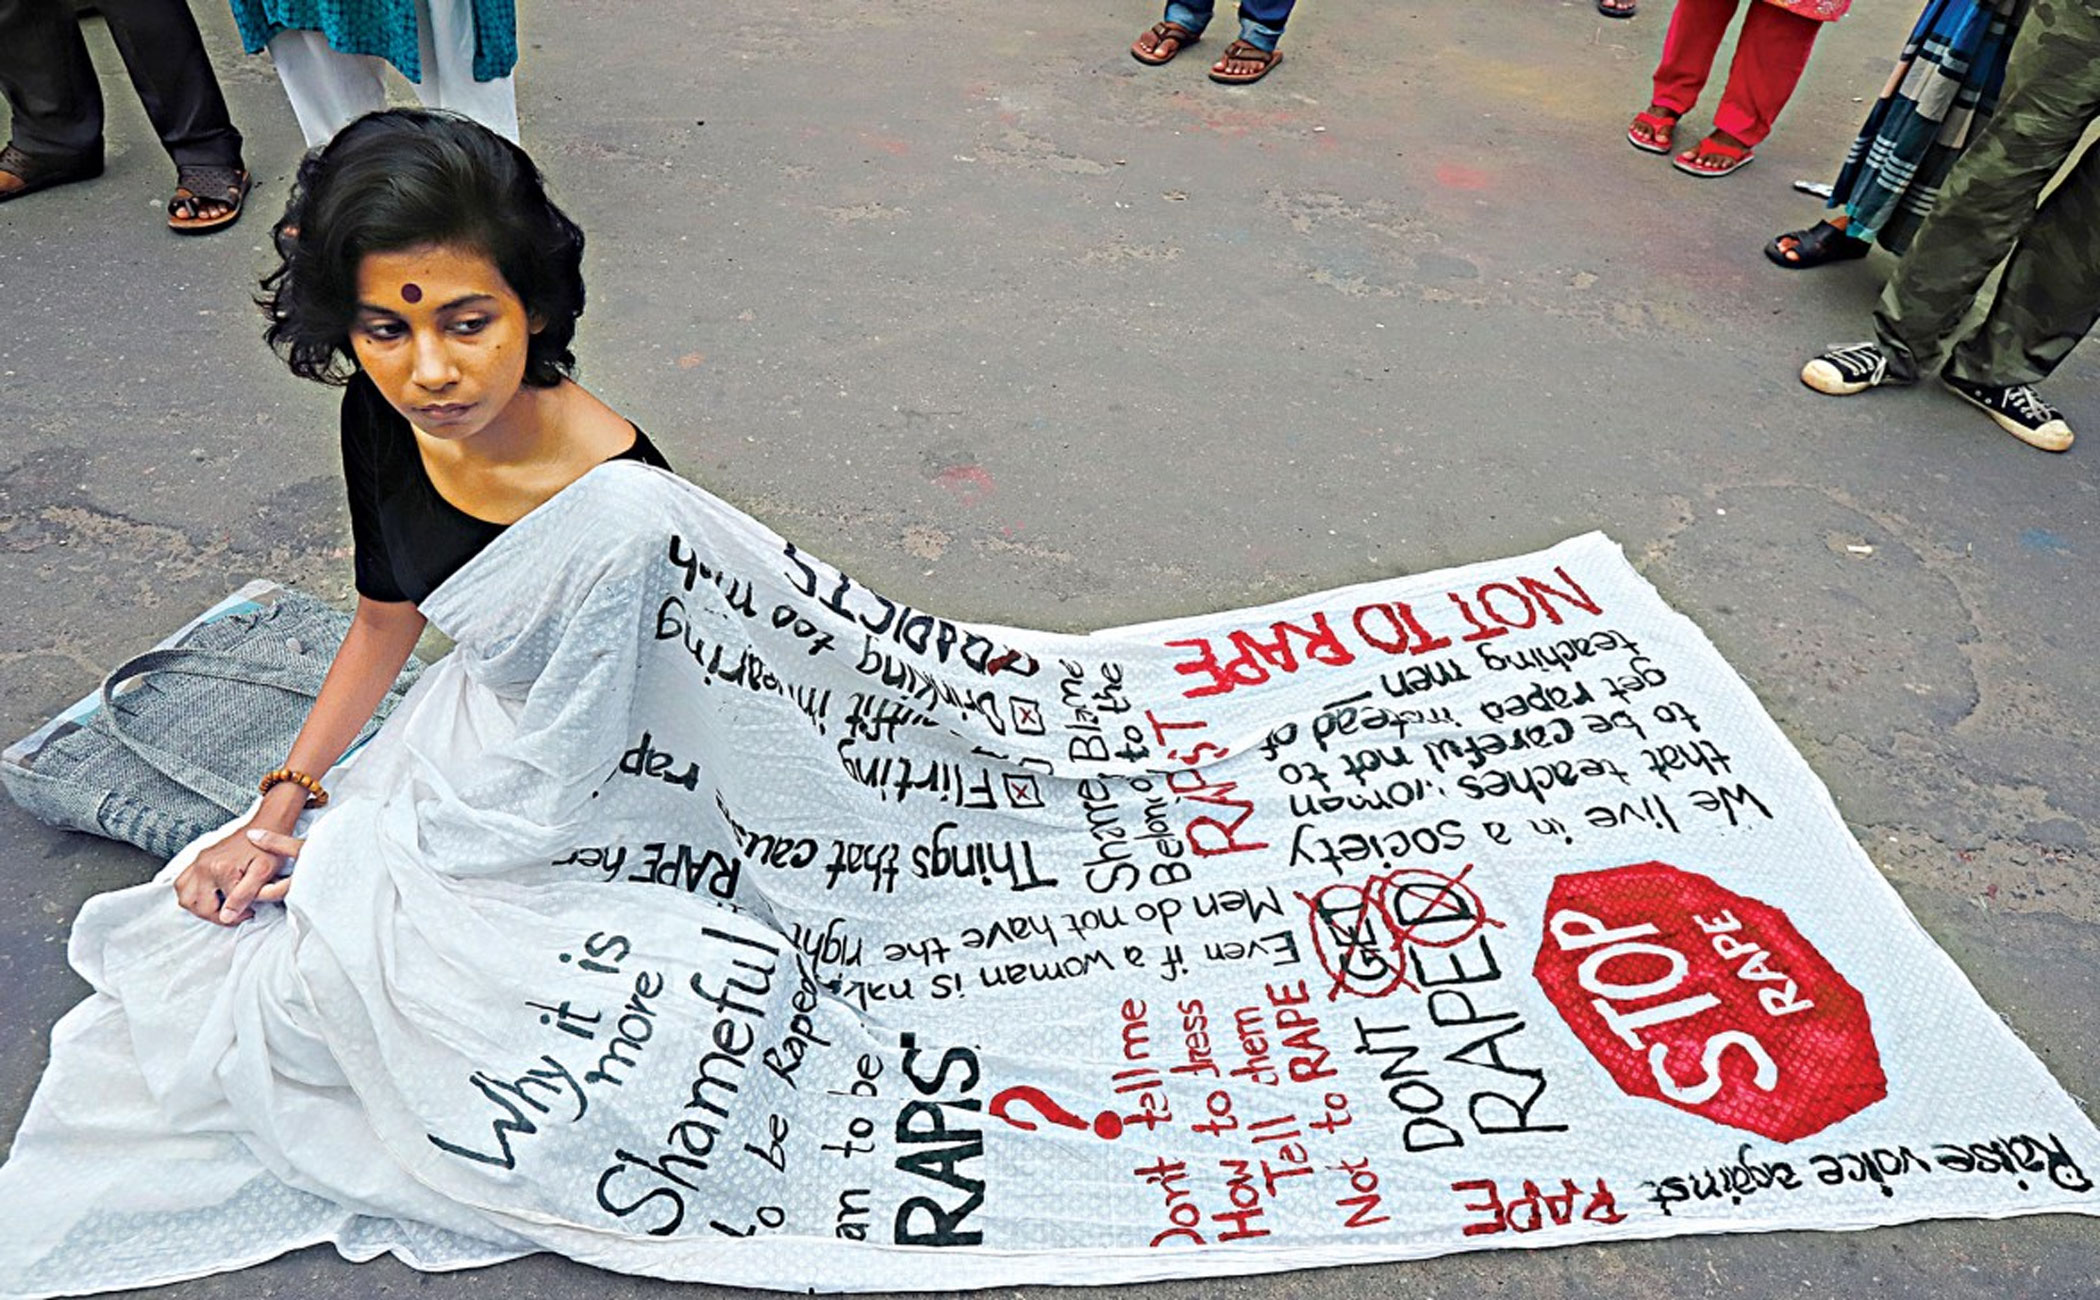 Why it is
more
Shameful
to be Raped
an to be
RAPIS
?
Don't tell me
How to dress
Tell them
Not to RAPE
DONT GET
RAPED
STOP
RAPE
Raise voice against
RAPE
We live in a society
that teaches woman
to be careful not to
get raped instead of
teaching men
NOT TO RAPE
Shame Blame
Belong to the
RAPIST
Even if a woman is
Men do not have the right
RAPE her
Things that
Flirting
outfit in wearing
Drinking too much